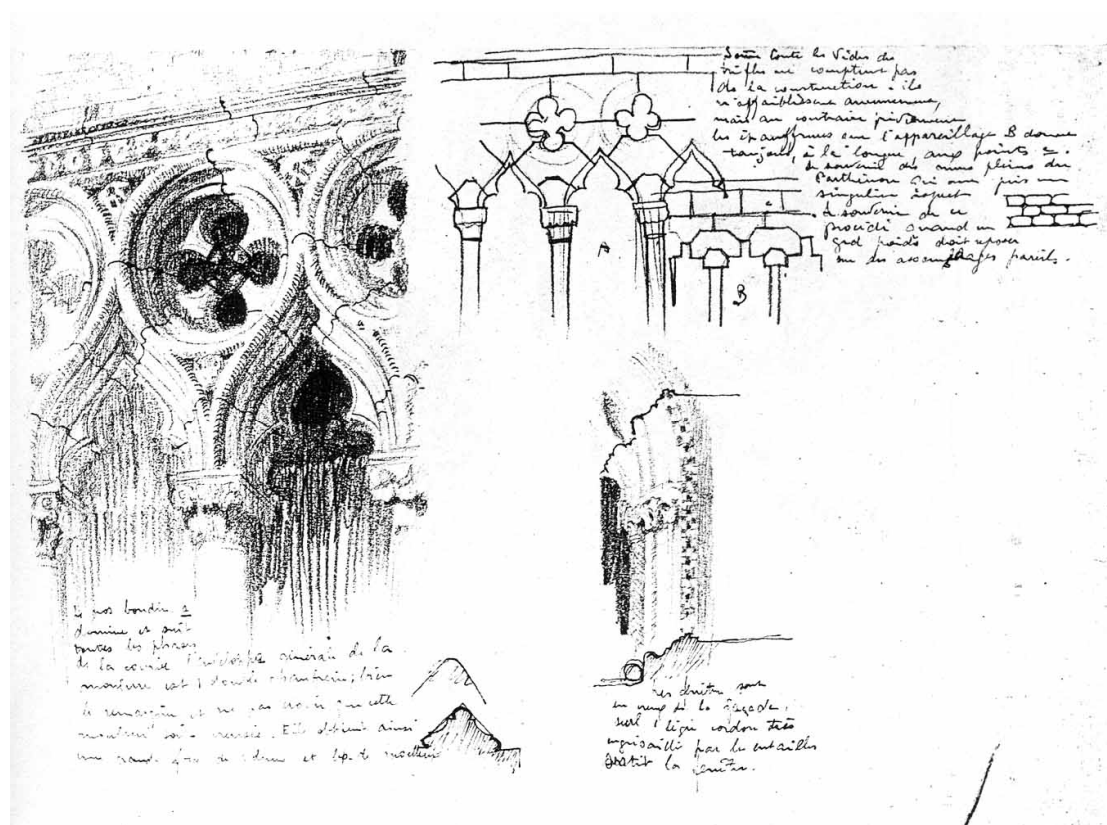 Somme toute les vides des
trèfles ne comptent pas
de la construction. ils
n'affaiblissent aucunement,
mais au contraire préviennent
les épauffrures que l'appareillage B donne
toujours, à la longue, aux points c.
Le souvenir des murs pleins du
Parthénon qui ont pris un
singulier
le souvenir de ce
procédé quand un
grd poids doit reposer
sur des assemblages pareils.
A
c
B
Le gros boudin a
domine et suit
toutes les phases
de la courbe L'enveloppe générale de la
moulure est 1 double chanfrein; bien
le remarquer, et ne pas croire que cette
moulure soit creusée. Elle obtient ainsi
Les fenêtres sont
en creux de la façade,
seul 1 léger cordon très
engrisaillé par les entailles
sertit la fenêtre.